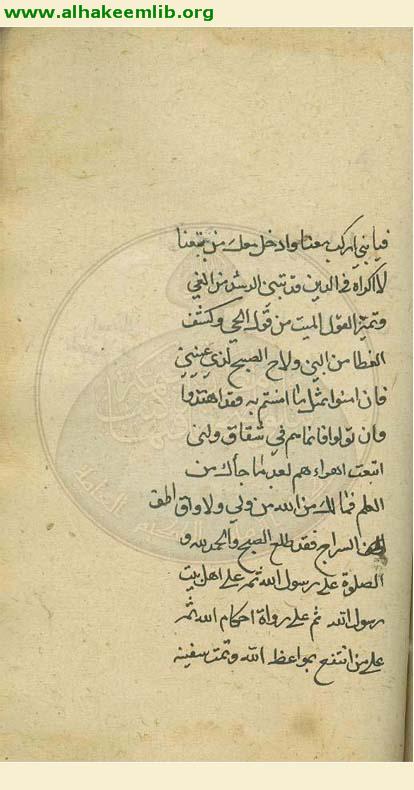 www.alhakeemlib.org
فيا بني اركب معنا وادخل معك من تبعنا
لا اكراه في الدين قد تبين الرشد من الغي
وتميز القول الميت من قول الحي وكشف
الغطا من البين ولاح الصبح لذي عينين
فان امنوا بمثل ما امنتم به فقد اهتدوا
وان تولوا فانما هم في شقاق ولئن
اتبعت اهواءهم بعد ما جاءك من
العلم فمالك من الله من ولي ولا واق اطف
السراج فقد طلع الصبح والحمد لله و
الصلوة على رسول الله ثم على اهل بيت
رسول الله ثم على رواة احكام الله ثم
على من انتفع بمواعظ الله وتمت سفينه